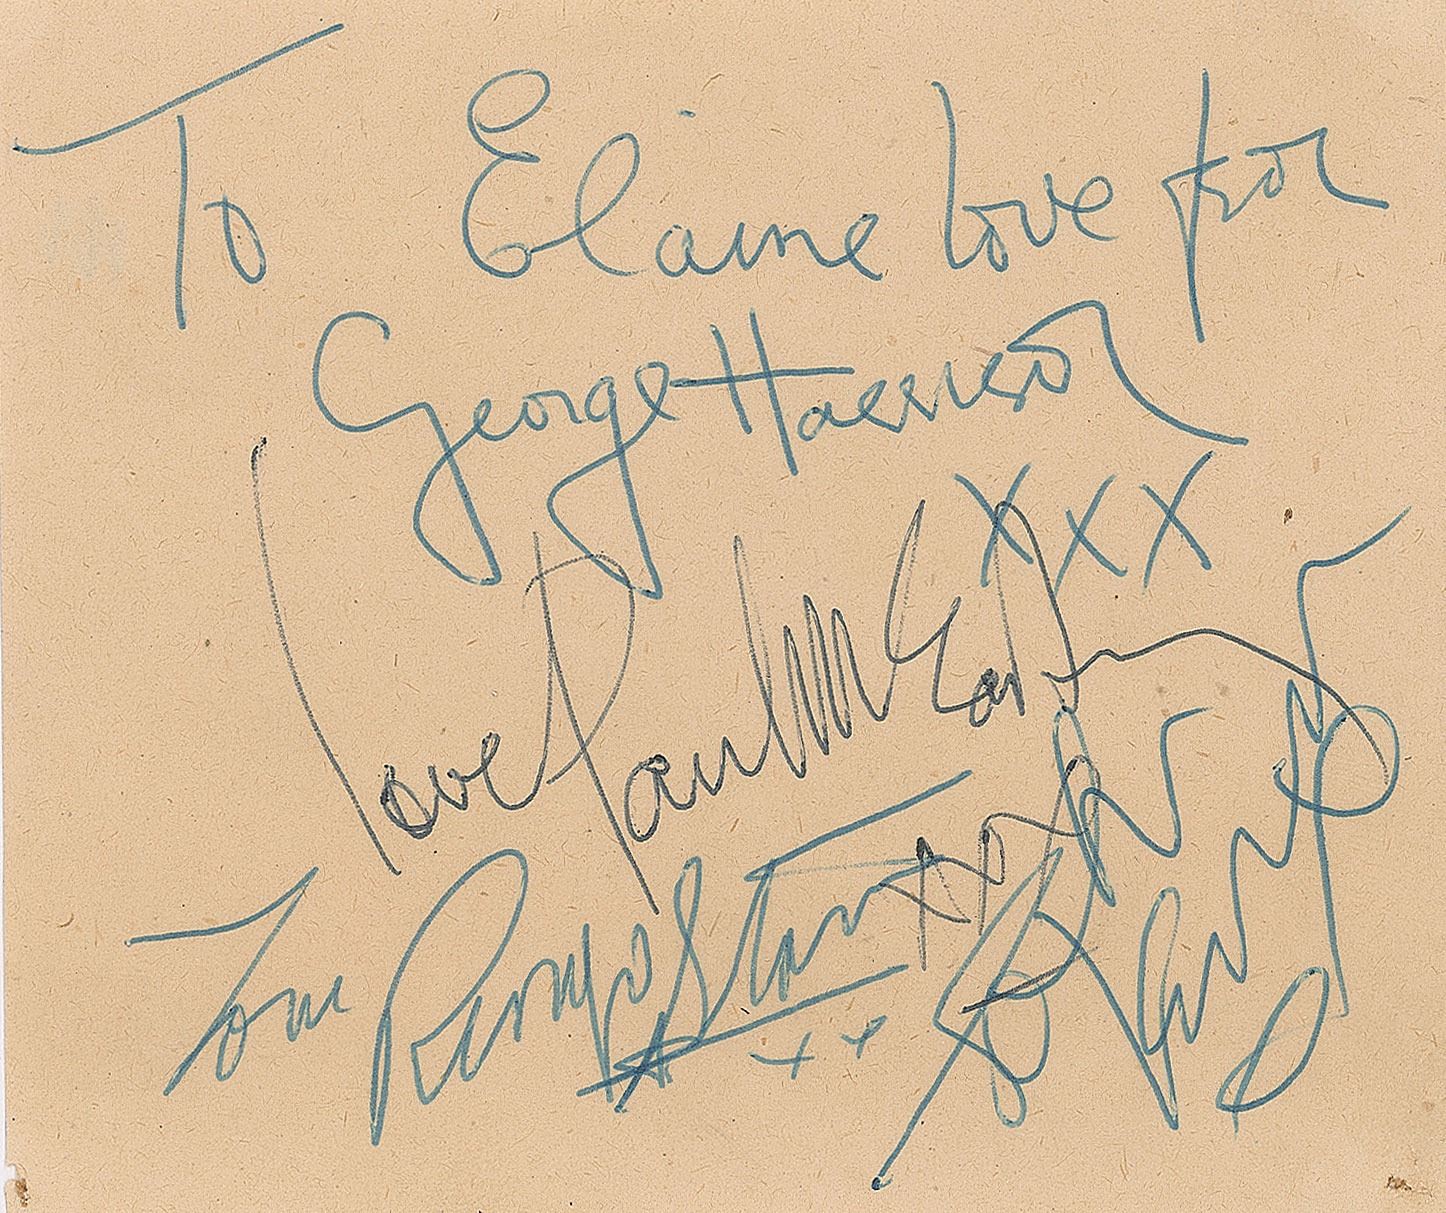 To Elaine love from
George Harrison
xxx
love Paul McCartney
xxx
Love Ringo Starr
xx